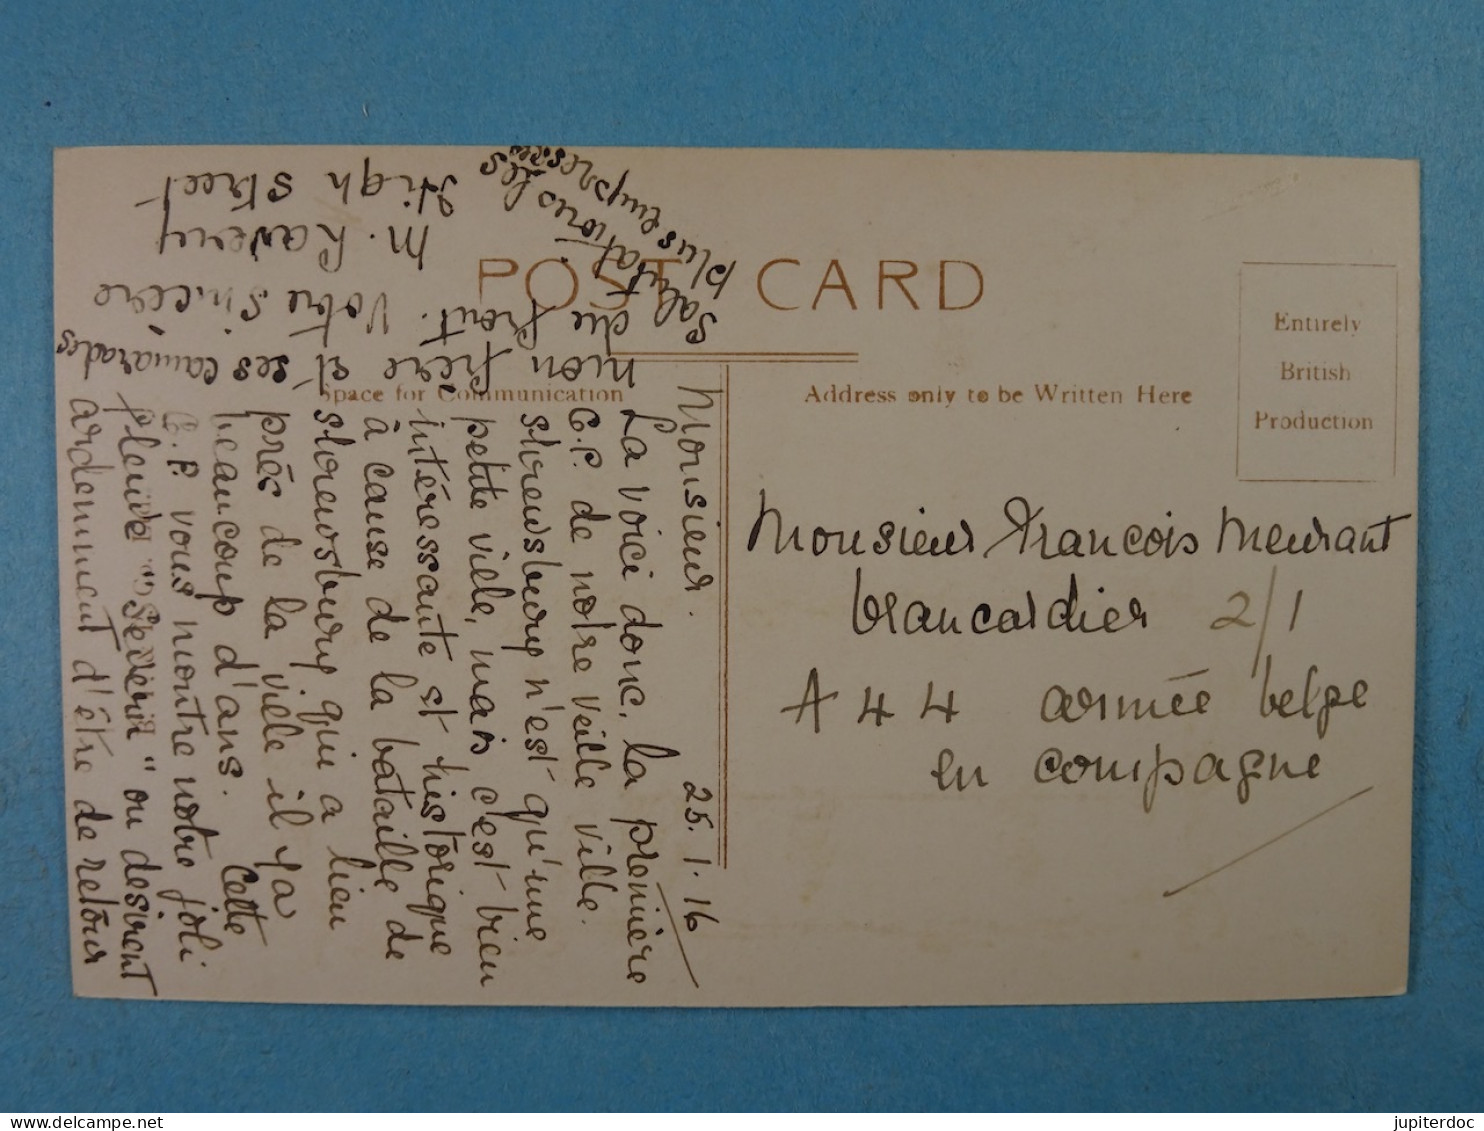 POST CARD
Space for Communication
Address only to be Written Here
Entirely
British
Production
25.1.16
Monsieur.
La voici donc, la première
C.P. de notre veille ville.
Shrewsbury n'est qu'une
petite viele, mais c'est bien
intéressante et historique
à cause de la bataille de
Shrewsbury qui a lieu
près de la viele il ya
beaucoup d'ans. Cette
C.P. vous montre notre joli
fleuve "Severn" ou desirent
ardemment d'être de retour
mon frère et ses camarades
du front. Votre sincère
M. Ravery
High Street
Salutations les
plus empressées
Monsieur François Meurant
brancardier 2/1
A 44 armée belge
en compagne
jupiterdoc